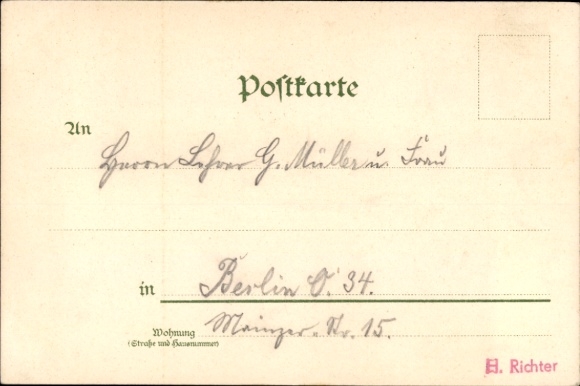 Postkarte
An
Herrn Lehrer G. Müller u. Frau
in Berlin O. 34.
Wohnung
(Straße und Hausnummer)
Mainzer-Str. 15.
H. Richter